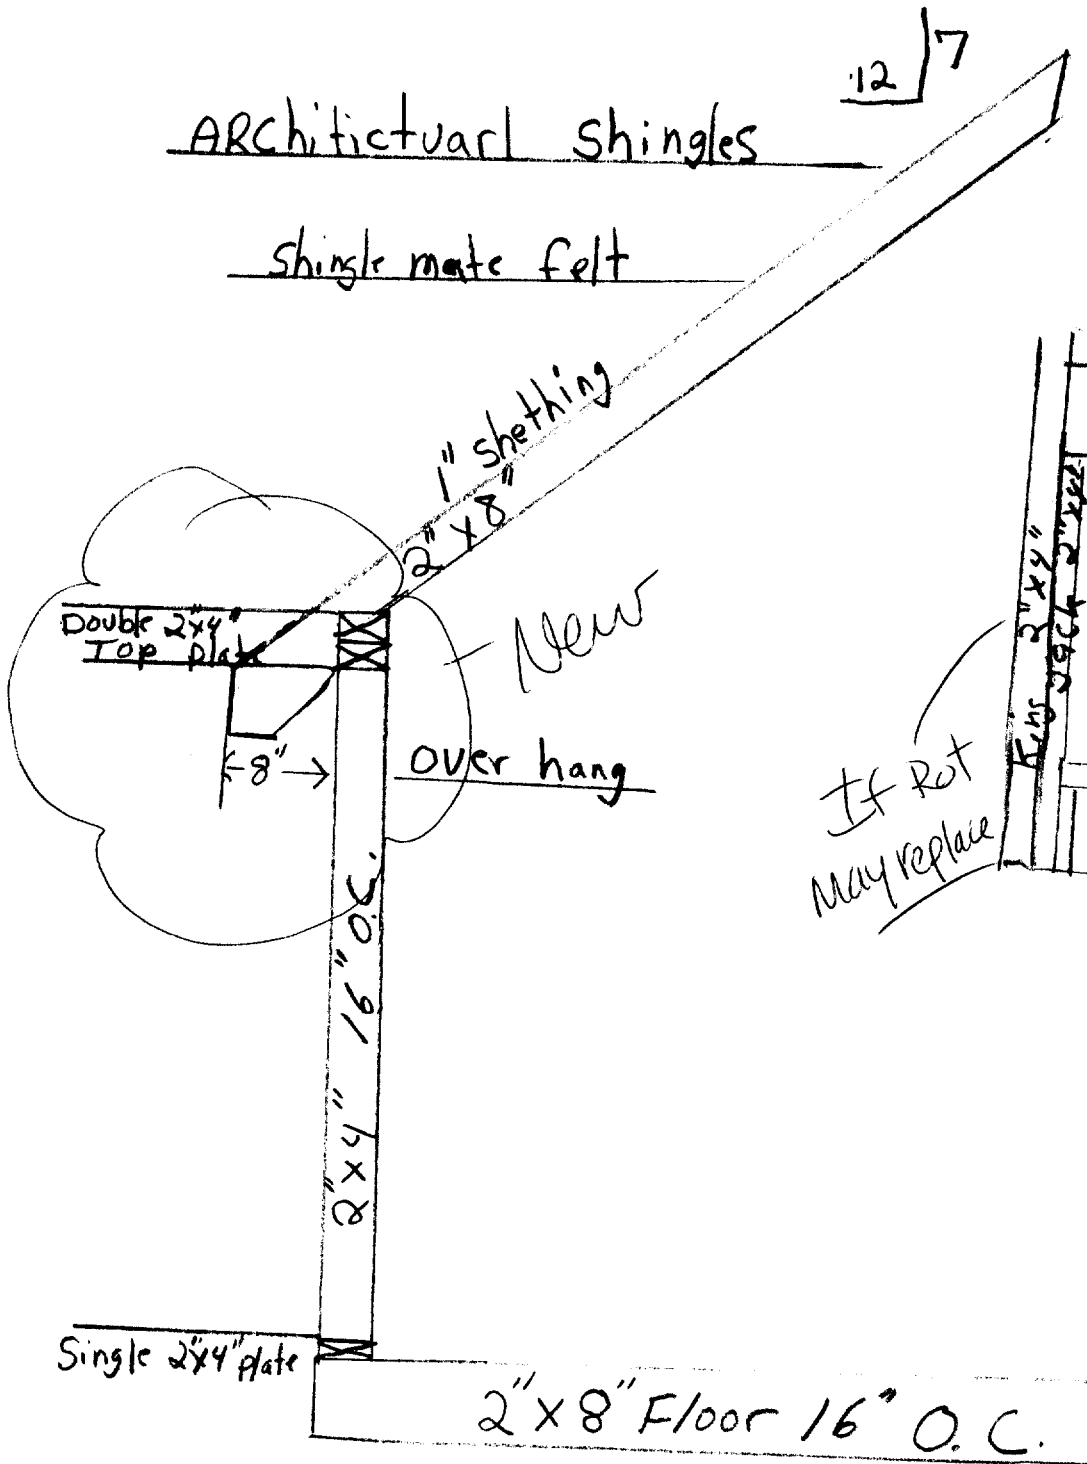 12 7
ARChitictuarl Shingles
Shingle mate felt
1" shething
2" x 8"
Double 2"x4"
Top plate
New
8"
over hang
King 2"x4"
Jack 2"x4"
If Rot
May replace
2"x4" 16" O.C.
Single 2"x4" plate
2"x8" Floor 16" O.C.